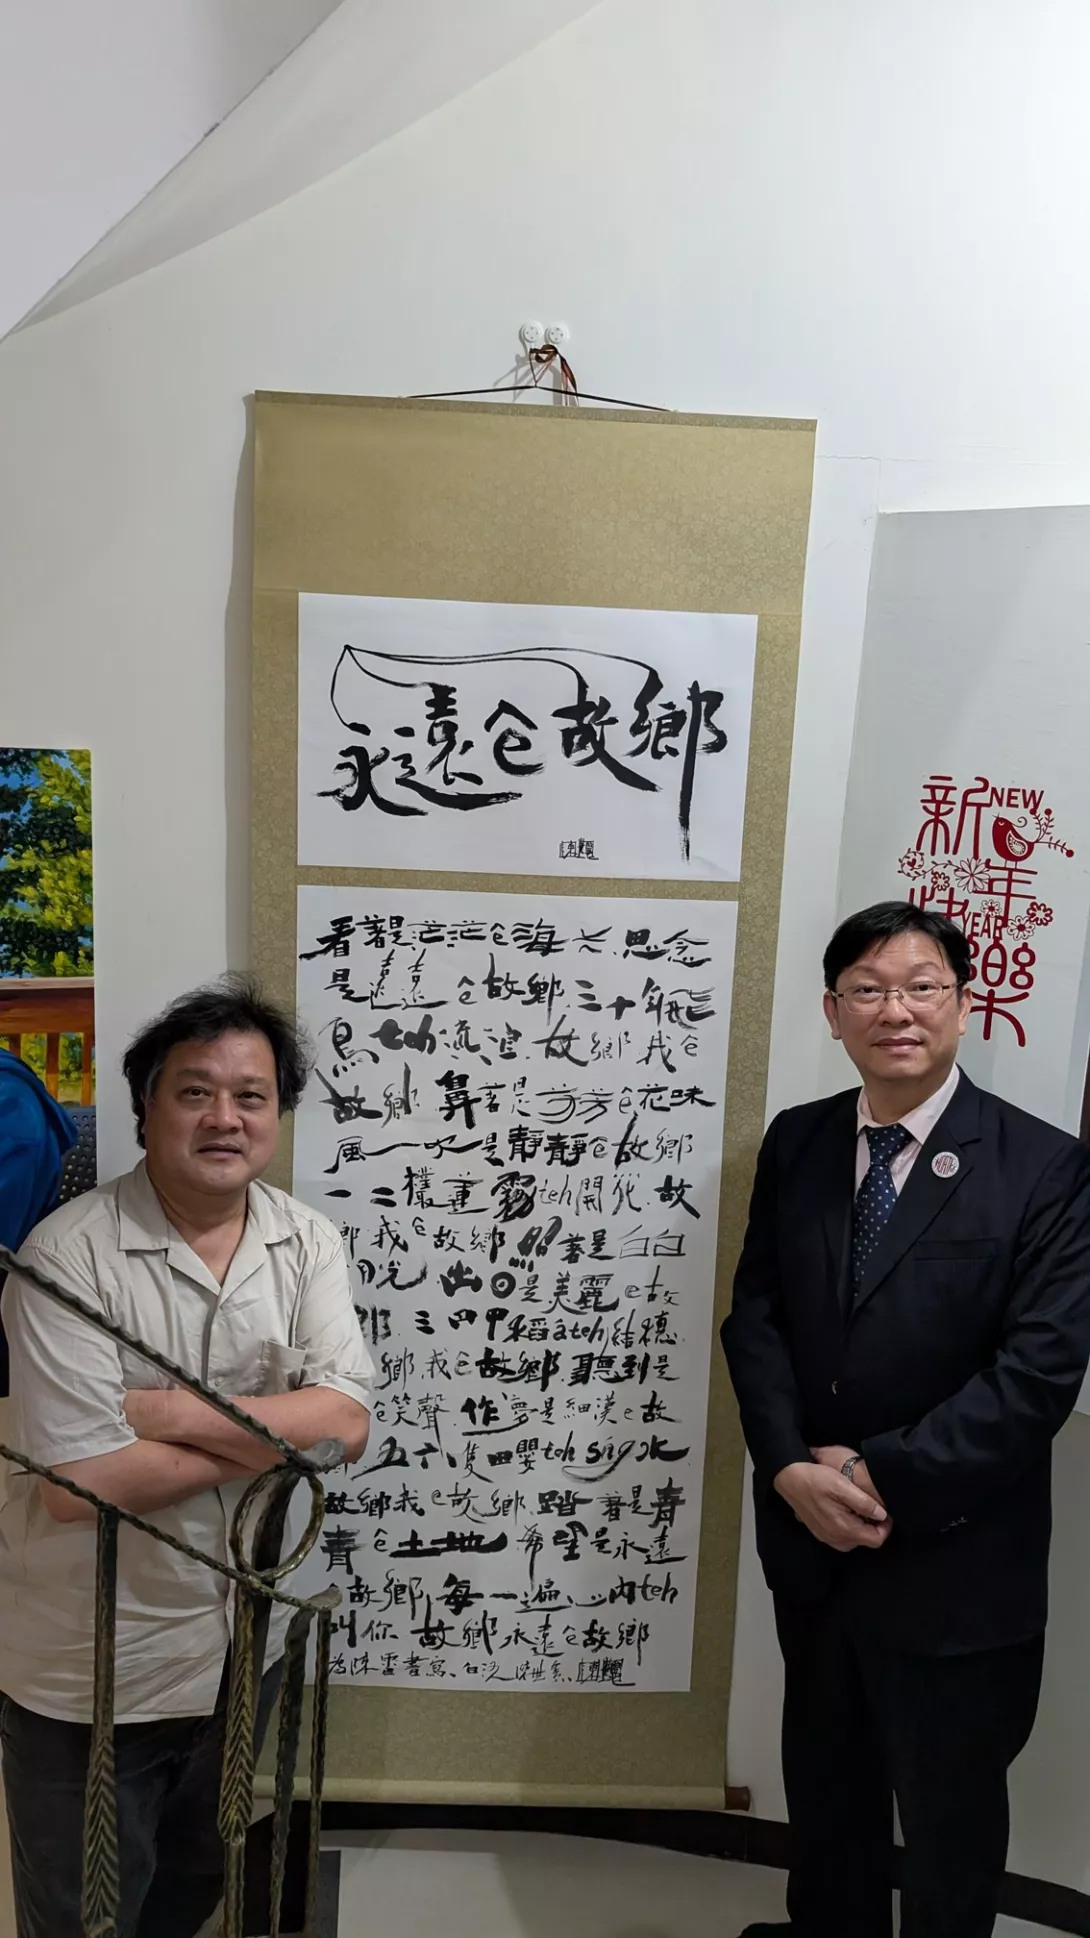 永遠仒故鄉
看著是茫茫仒海
思念
是遠遠仒故鄉 三十年飛
鳥 teh 流浪 故鄉我仒
故鄉 鼻著是芳芳仒花味
風一吹是靜靜仒故鄉
一二欉蓮霧 teh 開花 故
鄉我仒故鄉 照著是白白
月光 出
是美麗 e 故
鄉 三四甲稻á teh 結穗
鄉 我仒故鄉 聽到是
仒笑聲 作夢是細漢 e 故
五六隻 teh sńg 水
故鄉我 e 故鄉 踏著是青
青仒土地 希望是永遠
故鄉 每一遍心內 teh
叫你 故鄉永遠仒故鄉
為陳雷書寫
新年快樂
NEW
YEAR